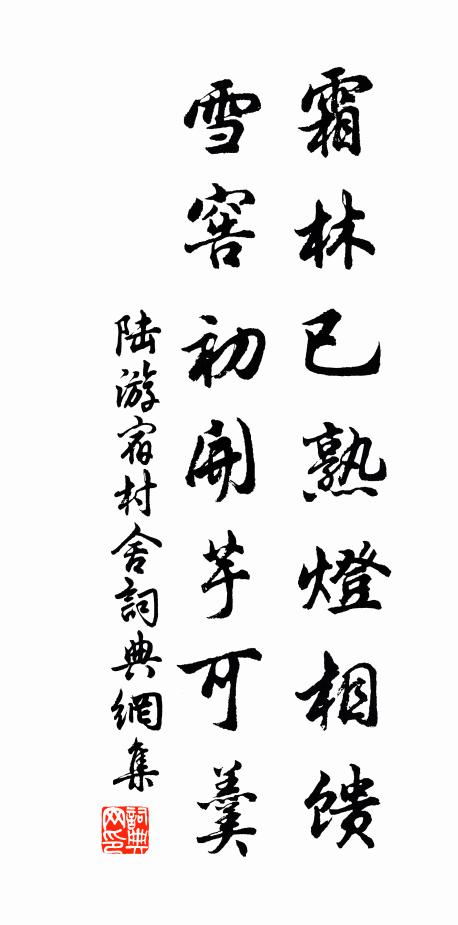 霜林已熟燈相馈
雪窖初開芋可羹
陆游宿村舍詞典網集
詞典网印